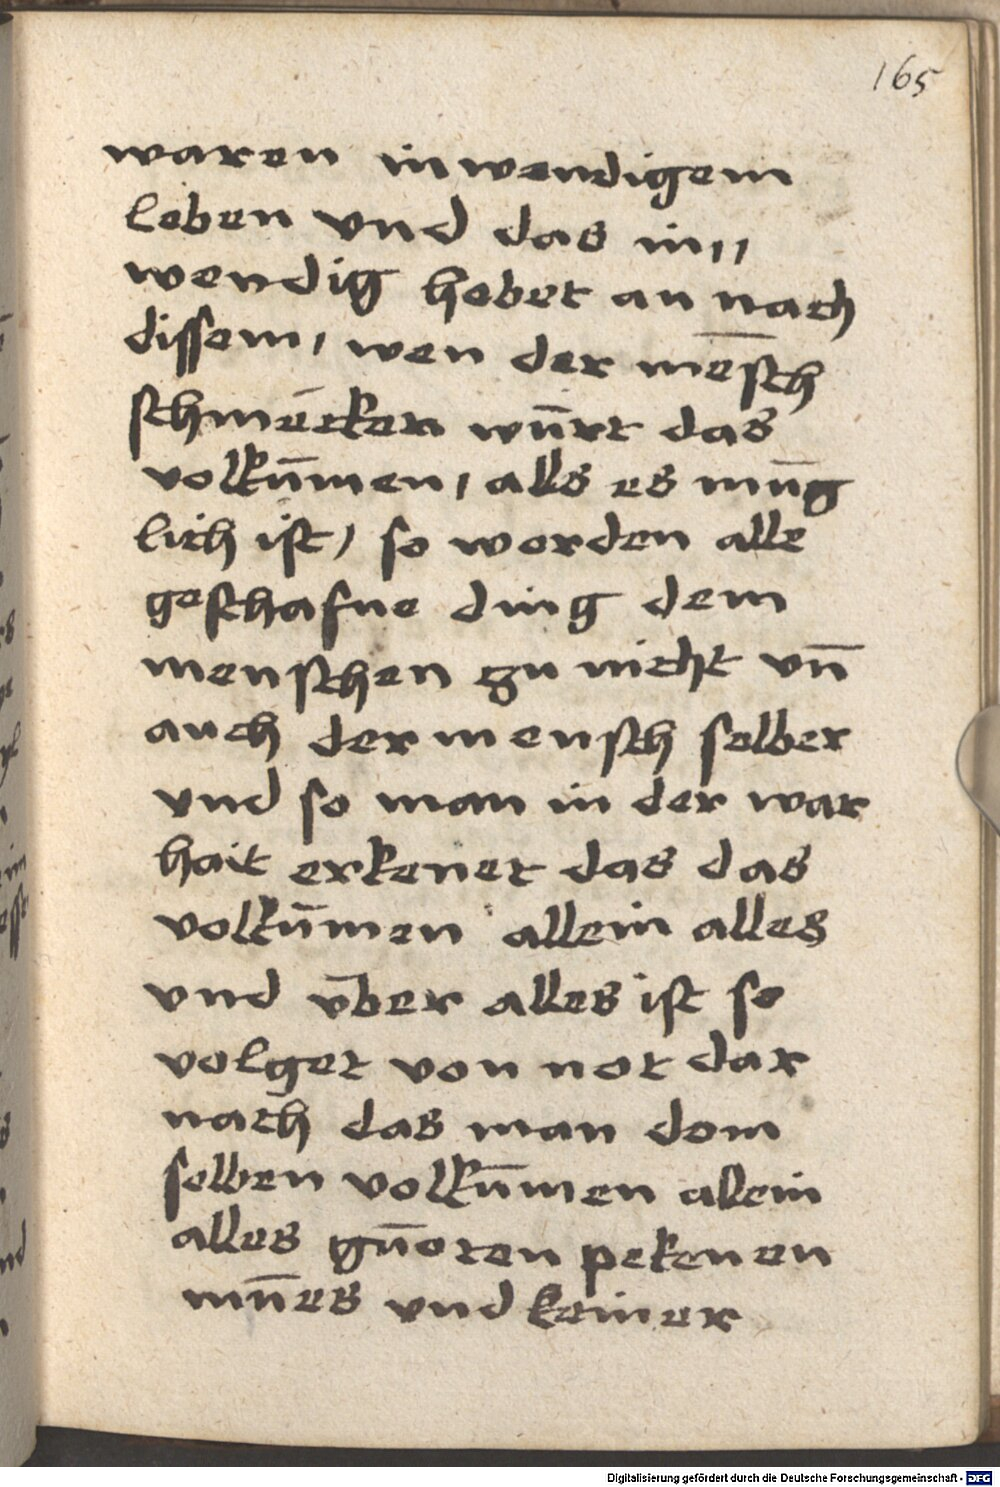 165
waren inwendigem
leben vnd das in,,
wendig hebet an nach
dissem, wen der mēsch
schmecken wūrt das
volkūmen, alls es mūg
lich ist, so werden alle
geschafne ding dem
menschen zu nicht vn̄
auch der mensch selber
vnd so man in der war
hait erkenet das das
volkūmen allein alles
vnd v̄ber alles ist so
volget von not dar
nach das man dem
selben volkūmen allein
alles gūoten pekenen
mūes vnd keiner
Digitalisierung gefördert durch die Deutsche Forschungsgemeinschaft - DFG